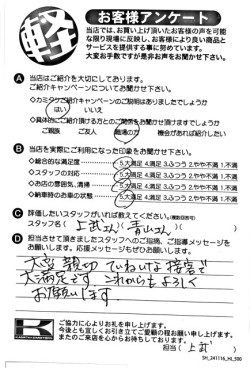 軽
お客様アンケート
当店では、お買い上げ頂いたお客様の声を可能
な限り現場に反映し、お客様により良い商品と
サービスを提供する事に努めています。
大変お手数ですが是非お声をお聞かせ下さい。
A 当店はご紹介を大切にしております。
ご紹介キャンペーンについてお聞かせ下さい。
◇カミタケご紹介キャンペーンのご説明はありましたでしょうか
はい いいえ
◇具体的にご紹介する方とのご関係をお聞かせ頂けますでしょうか
ご親族 ご友人 職場の方 機会があれば紹介したい
B 当店を実際にご利用になった印象をお聞かせ下さい。
◇総合的な満足度 5.大満足 4.満足 3.ふつう 2.やや不満 1.不満
◇スタッフの対応 5.大満足 4.満足 3.ふつう 2.やや不満 1.不満
◇お店の雰囲気、清掃 5.大満足 4.満足 3.ふつう 2.やや不満 1.不満
◇納車時のお車の状態 5.大満足 4.満足 3.ふつう 2.やや不満 1.不満
C 評価したいスタッフがいれば教えてください。(複数回答可)
スタッフ名( 上武さん 青山さん )
D 担当させて頂きましたスタッフへのご指摘、ご指導メッセージを
お願いします。応援メッセージもぜひお願いします。
大変 親切 ていねいな 接客で
大満足です これからも よろしく
お願いします
ご協力に心よりお礼を申し上げます。
今後とも宜しくお引き立てご愛顧の程お願い申し上げます。
またのご来店を心からお待ちしております。
担当( 上武 )
SH_241116_HI_300